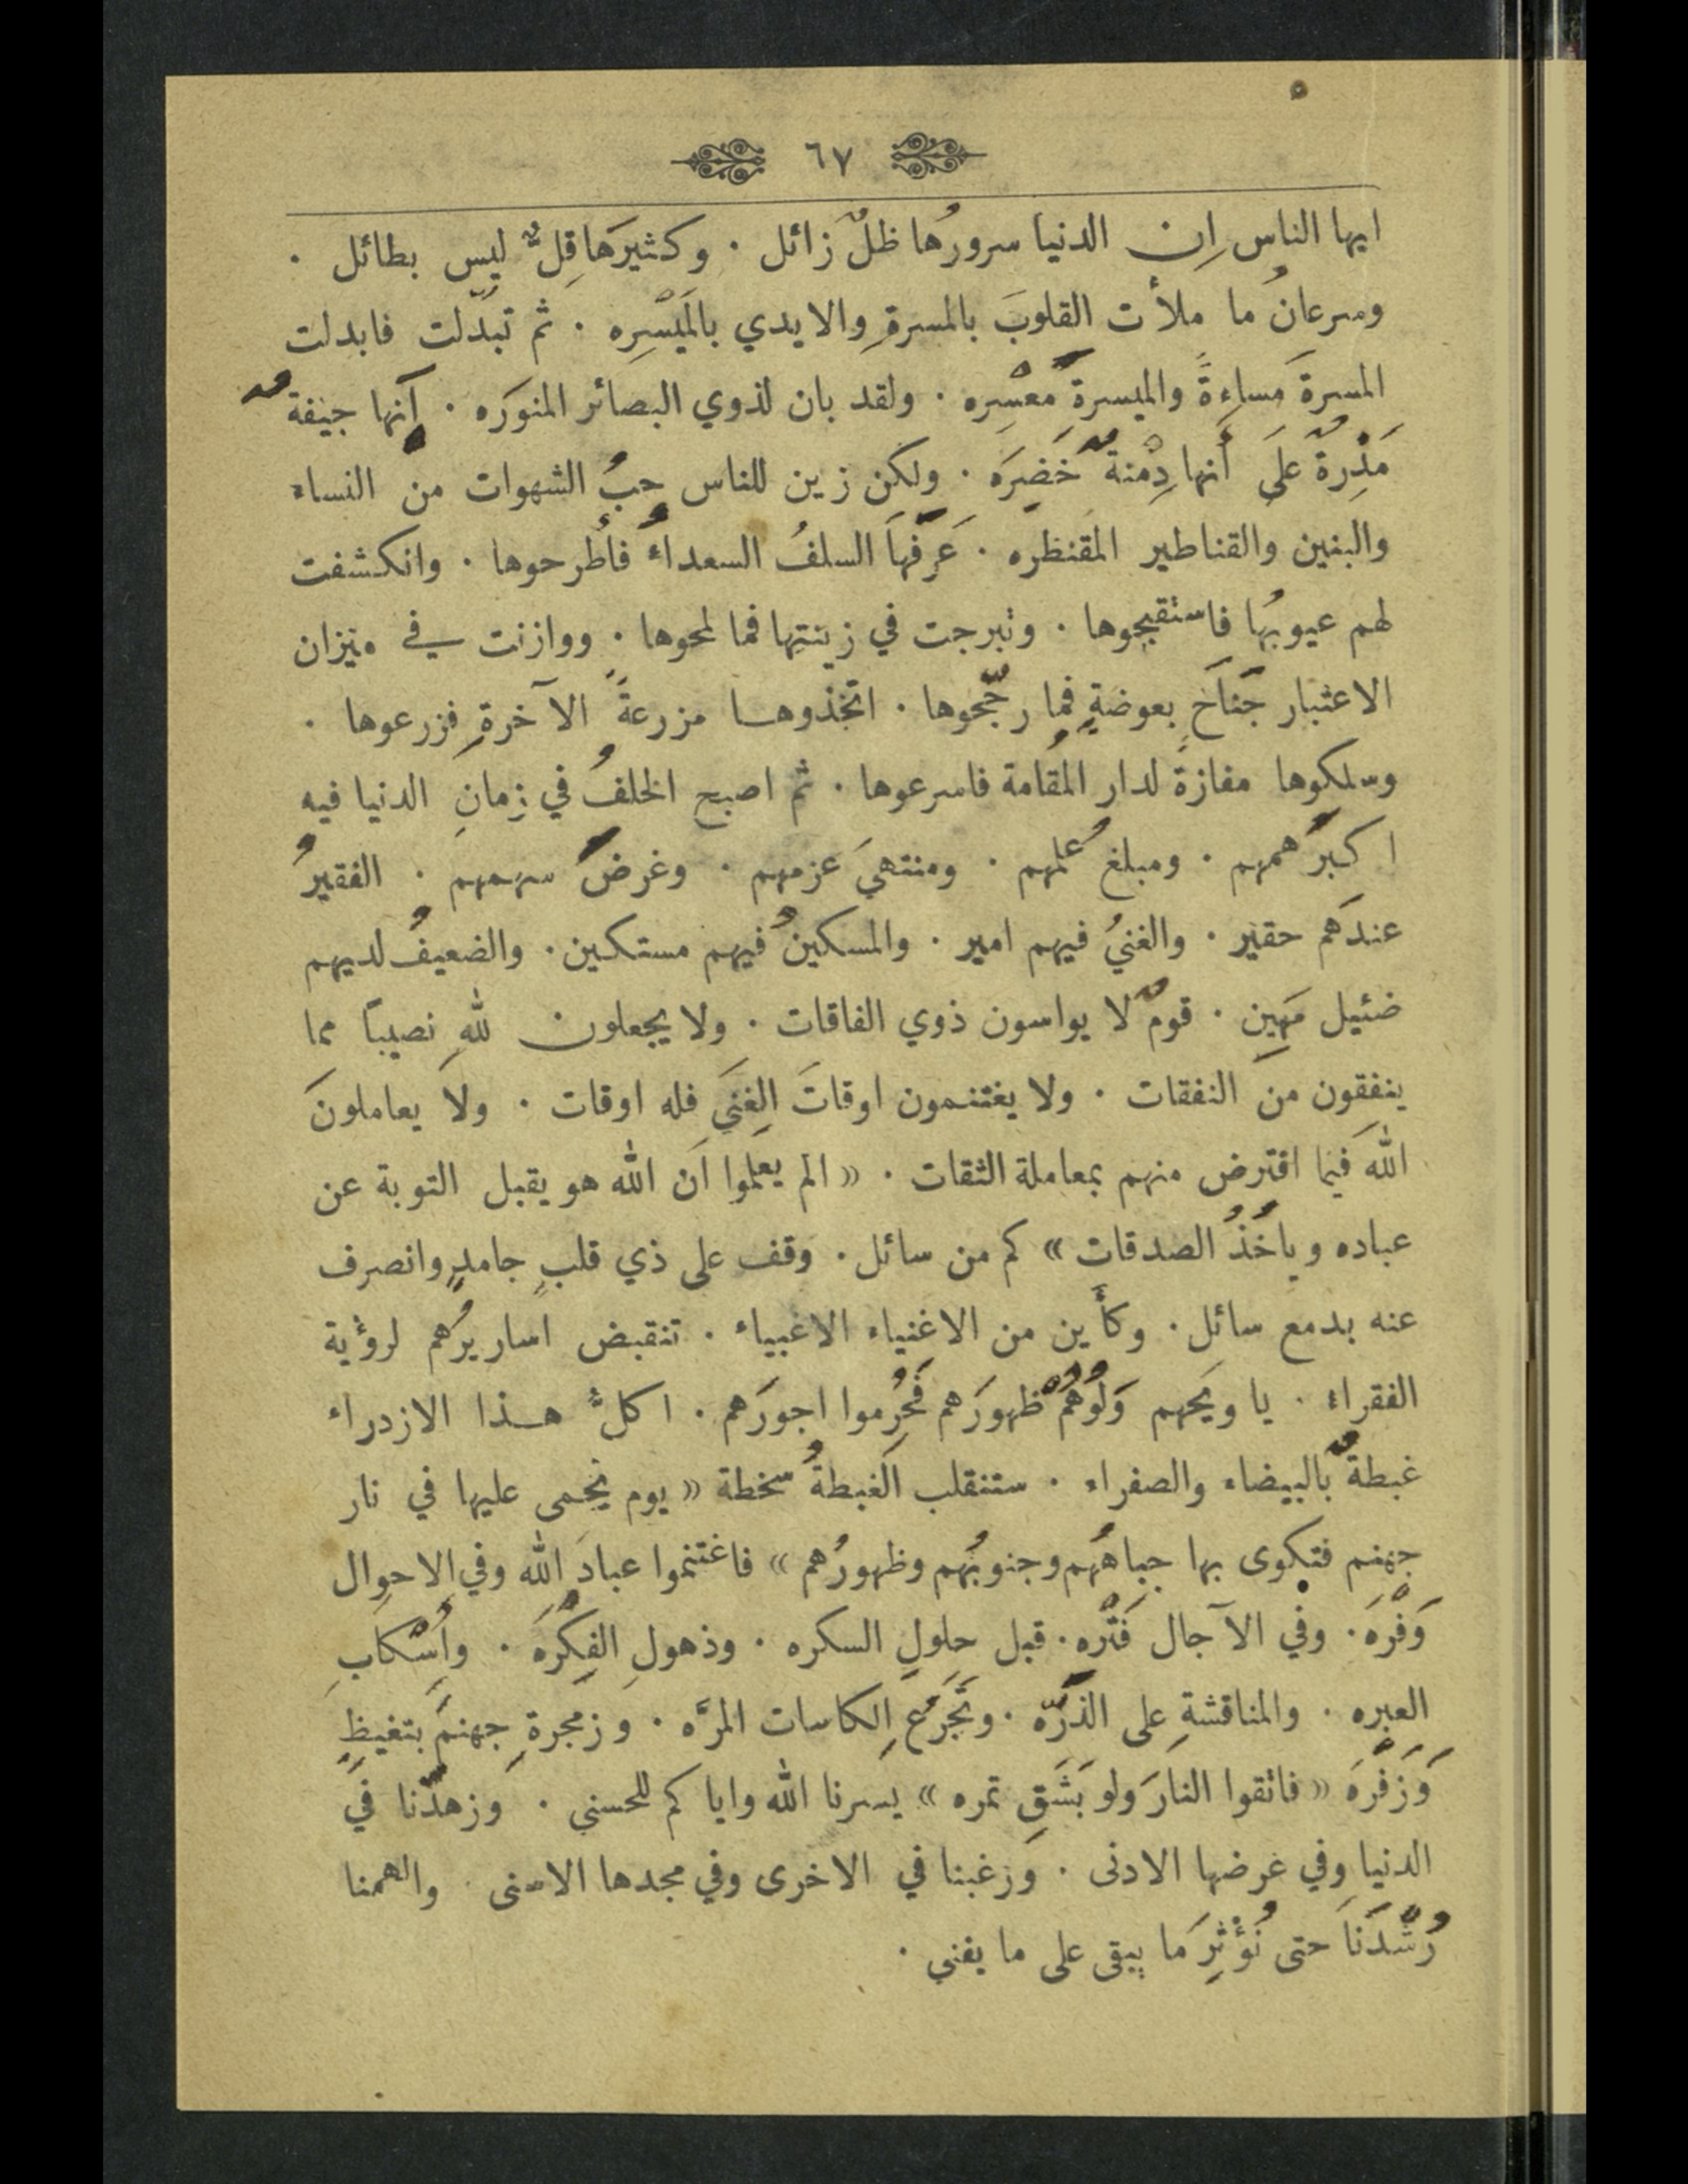 ٦٧
ايها الناس اِن الدنيا سرورُها ظلٌ زائل · وكثيرَها قِلٌّ ليس بطائل ·
وسرعانُ ما ملأت القلوبَ بالمسرةِ والايدي بالمَيْسِره · ثم تبدّلت فابدلت
المسرةَ مَساءةً والميسرةَ معسْره · ولقد بان لذوي البصائر المنوَره · أنها جيفةٌ
مَذْرةٌ علَى أنها دِمْنةٌ خَضِرَه · ولكن زين للناس حبُ الشهوات من النساء
والبنين والقناطير المقنظره · عَرَفَهاَ السلفُ السعداءُ فأطرحوها · وانكشفت
لهم عيوبُها فاستقبحوها · وتبرجت في زينتها فما لمحوها · ووازنت في ميزان
الاعتبار جَناَحَ بعوضةٍ فما رجّحوها · اتخذوها مزرعةً الآخرةِ فزرعوها ·
وسلكوها مفازةً لدار المُقامة فاسرعوها · ثم اصبح الخلفُ في زمانِ الدنيا فيه
اكبرُ همهم · ومبلغُ علمهم · ومنتهىَ عزمهم · وغرضُ سهمهم · الفقيرُ
عندَهم حقير · والغنيُ فيهم امير · والمسكينُ فيهم مستكين · والضعيفُ لديهم
ضئيل مَهِين · قومٌ لا يواسون ذوي الفاقات · ولا يجعلون للهِ نصيباً مما
ينفقون من النفقات · ولا يغتنمون اوقاتَ الغِنَى فله اوقات · ولا يعاملونَ
اللهَ فيما افترض منهم بمعاملة الثقات · «الم يعلموا اَن الله هو يقبل التوبة عن
عباده وياخُذُ الصدقات» كم من سائل · وقف على ذي قلبٍ جامدٍ وانصرف
عنه بدمع سائل · وكأَين من الاغنياء الاغبياء · تنقبض اساريرُهم لرؤية
الفقراء · يا ويَحهم وَلَّوْهُمْ ظهورَهم فَحُرِموا اجورَهم · اكلُّ هذا الازدراء
غبطةٌ بالبيضاء والصفراء · ستنقلب الغبطةُ سخطة «يوم يحمى عليها في نار
جهنم فتكوى بها جباهُهُم وجنوبُهم وظهورُهم» فاغتنموا عبادَ اللهِ وفي الاحوال
وَفْرَه · وفْي الآجال فَتْره · قبل حلولِ السكره · وذهولِ الفِكْرَه · واِسْكابِ
العبره · والمناقشةِ على الذَّرّه · وتَجَرُّعِ الكاسات المرَّه · وزمجرةِ جهنمَ بتغيظٍ
وَزَفْرَه «فاتقوا النارَ ولو بَشَقِ تمره» يسرنا الله واياكم للحسنى · وَزهدّنا في
الدنيا وفي غرضها الادنى · وَرغبنا في الاخرى وفي مجدها الاسنى · والهمنا
رُشْدَنَا حتى نُؤْثِرَ ما يبقى على ما يفنى ·